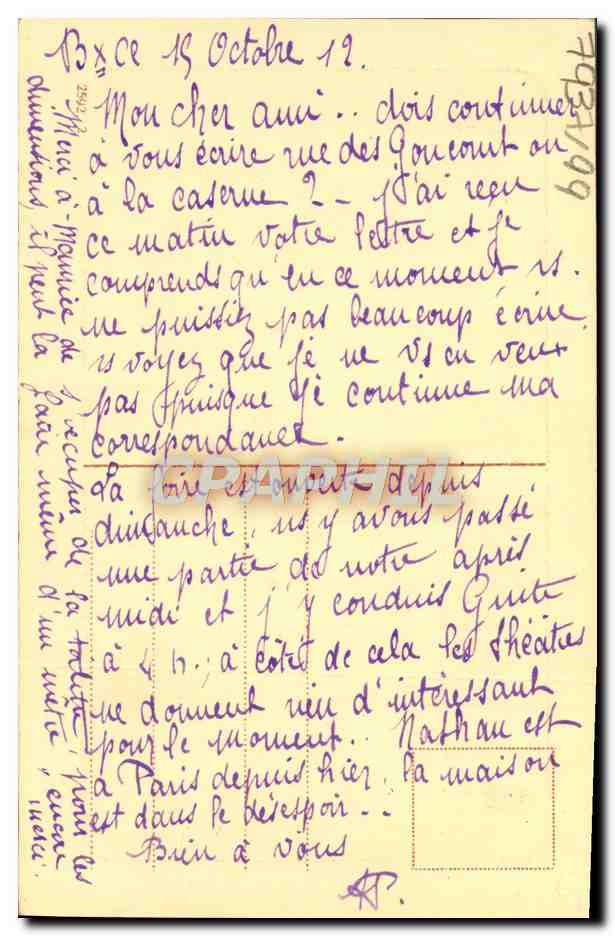 Bx ce 15 Octobre 12.
Mon cher ami .. dois continuer
à vous écrire rue des Goncourt ou
à la caserne ? - J'ai reçu
ce matin votre lettre et je
comprends qu'en ce moment vs.
ne puissiez pas beaucoup écrire
vs voyez que je ne vs en veux
pas puisque je continue ma
correspondance.
La foire est ouverte depuis
dimanche, ns y avons passé
une partie de notre après
midi et j'y conduis Guite
à 4 h., à côté de cela les théâtres
ne donnent rien d'intéressant
pour le moment.. Nathan est
à Paris depuis hier, la maison
est dans le désespoir..
Bien à vous
AP.
Merci à Maurice de s'occuper de la toilette, pour les
dimensions, il peut la faire même d'un mètre, encore
merci.
2542
7937/99
CPAPHIL